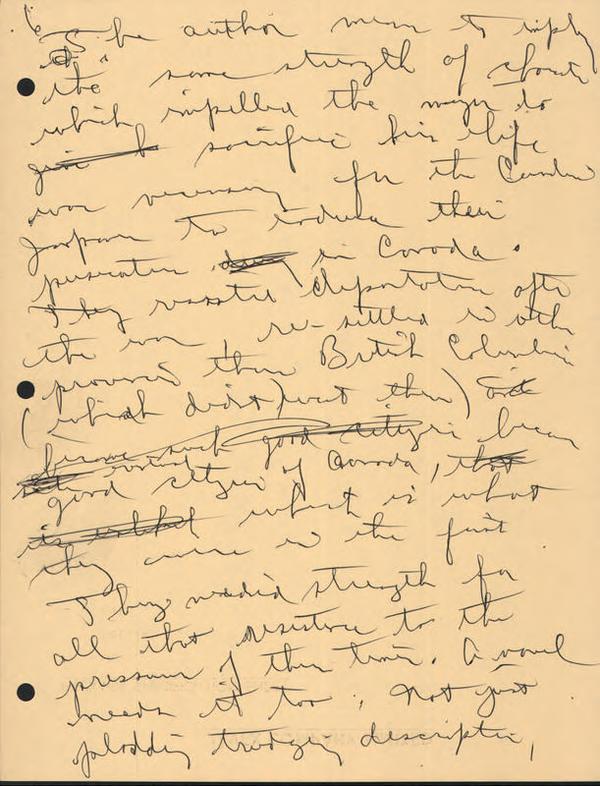 The author mean to imply
the same strength of character
which impelled the major to
give sacrifice his life
was necessary for the Canadian
Japanese to endure their
persecution in Canada.
They resisted deportation after
the war, re-settled in other
provinces than British Columbia
(which didn't want them) and
become such good citizens became
good citizens of Canada, that
its which is what
they were in the first
They needed strength for
all that resistance to the
pressures of their times. A novel
needs it too, not just
plodding trudging description,